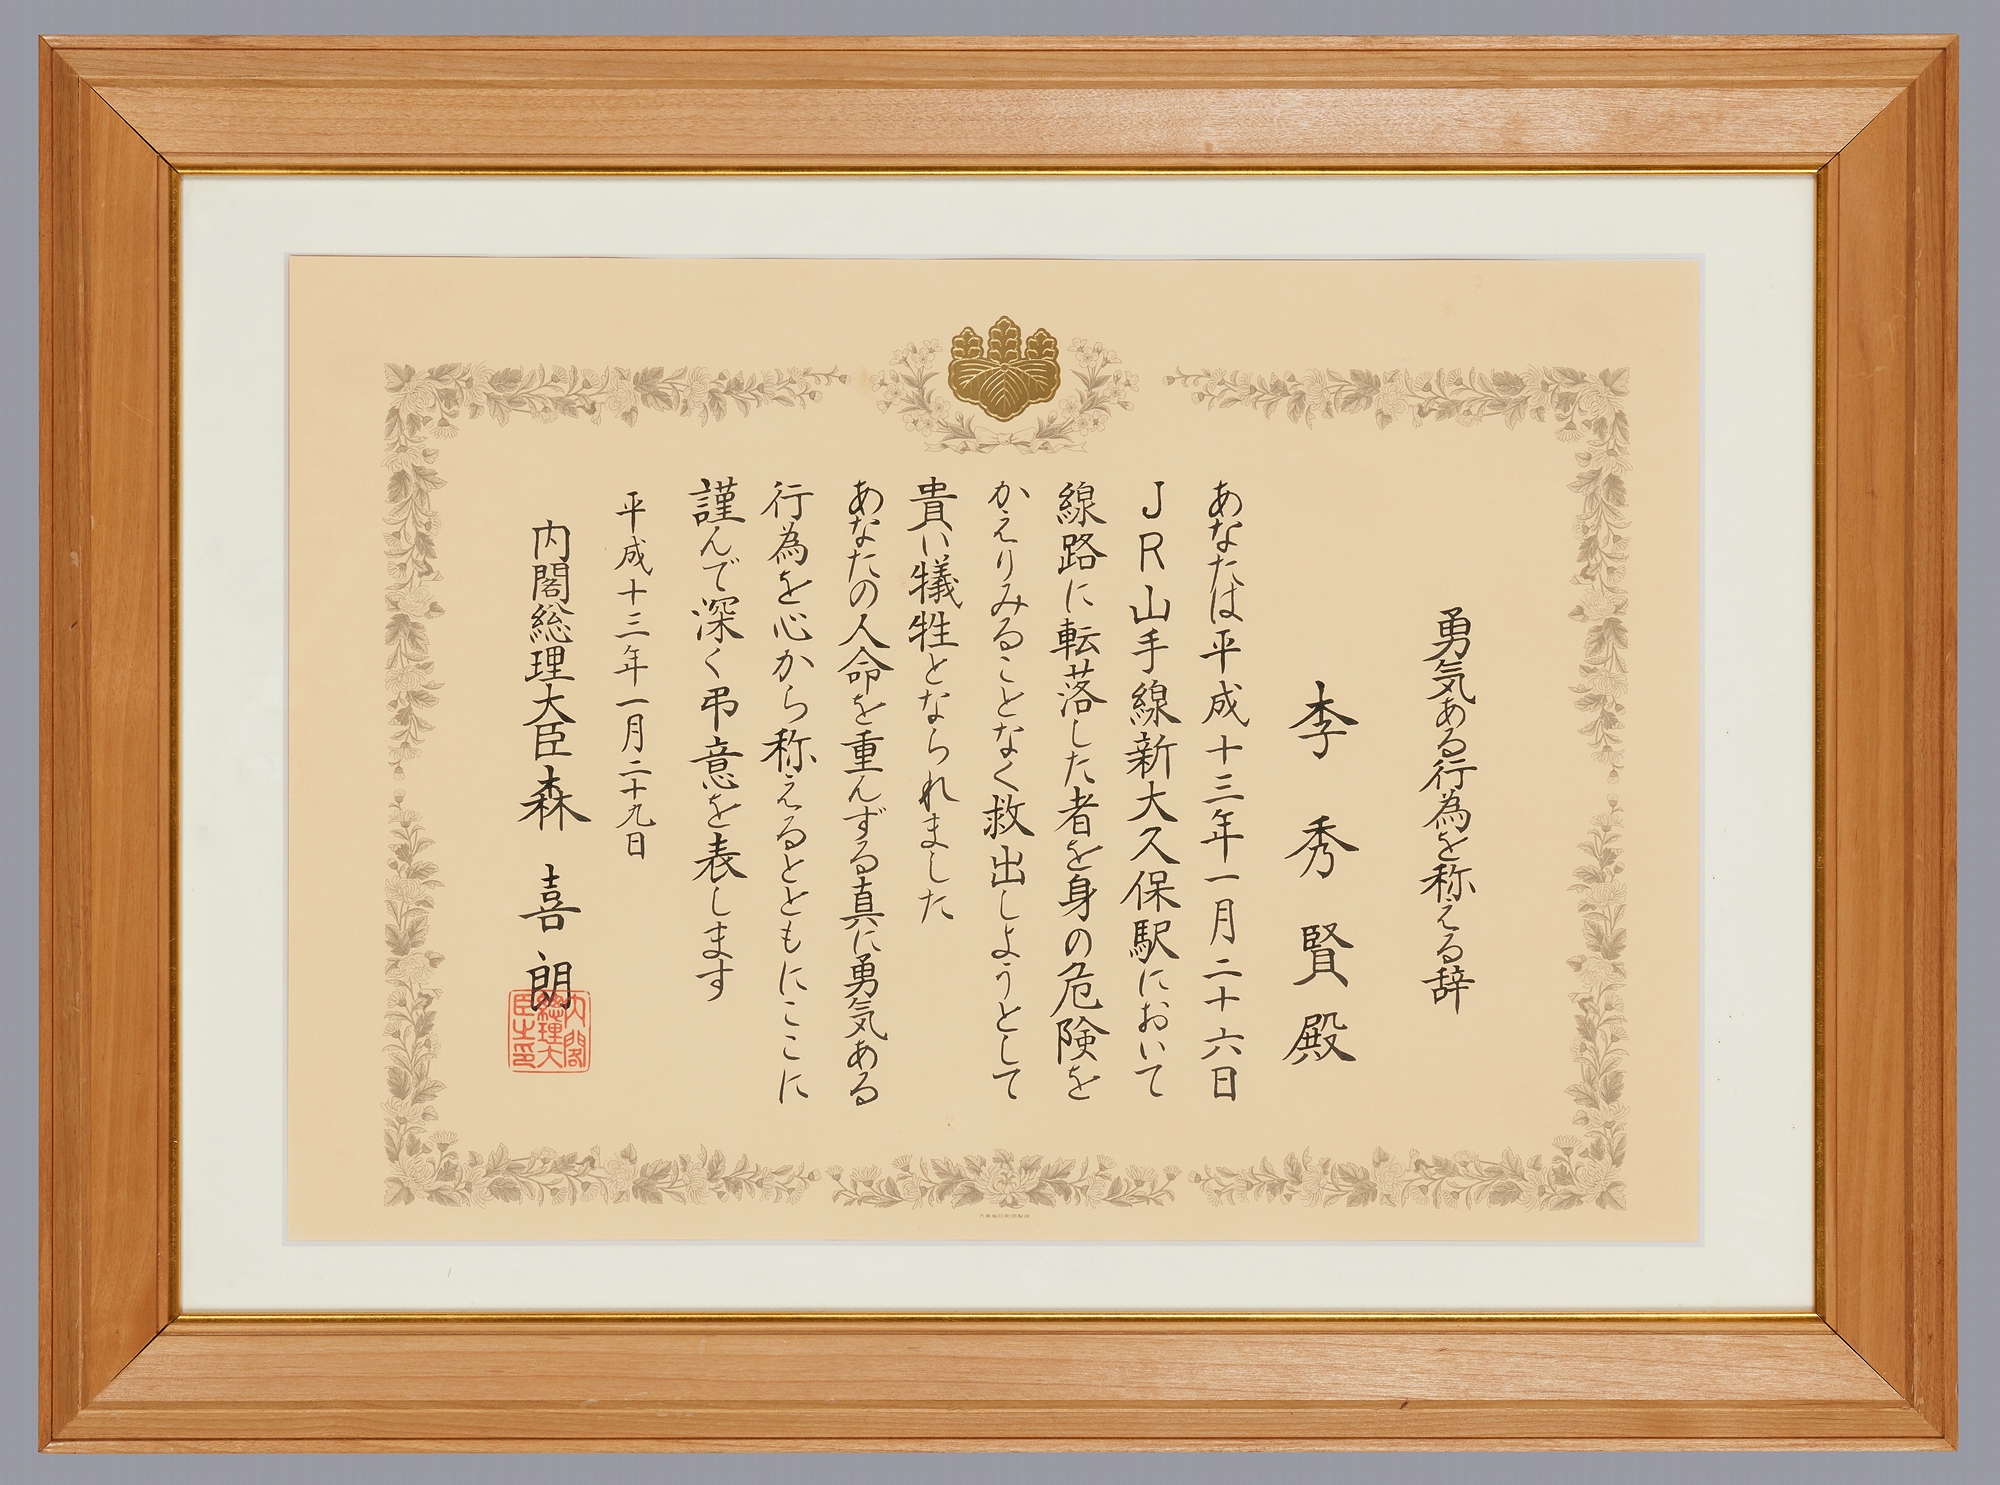 勇気ある行為を称える辞
李秀賢殿
あなたは平成十三年一月二十六日
JR山手線新大久保駅において
線路に転落した者を身の危険を
かえりみることなく救出しようとして
貴い犠牲となられました
あなたの人命を重んずる真に勇気ある
行為を心から称えるとともにここに
謹んで深く弔意を表します
平成十三年一月二十九日
内閣総理大臣森喜朗
内閣
總理大
臣之印